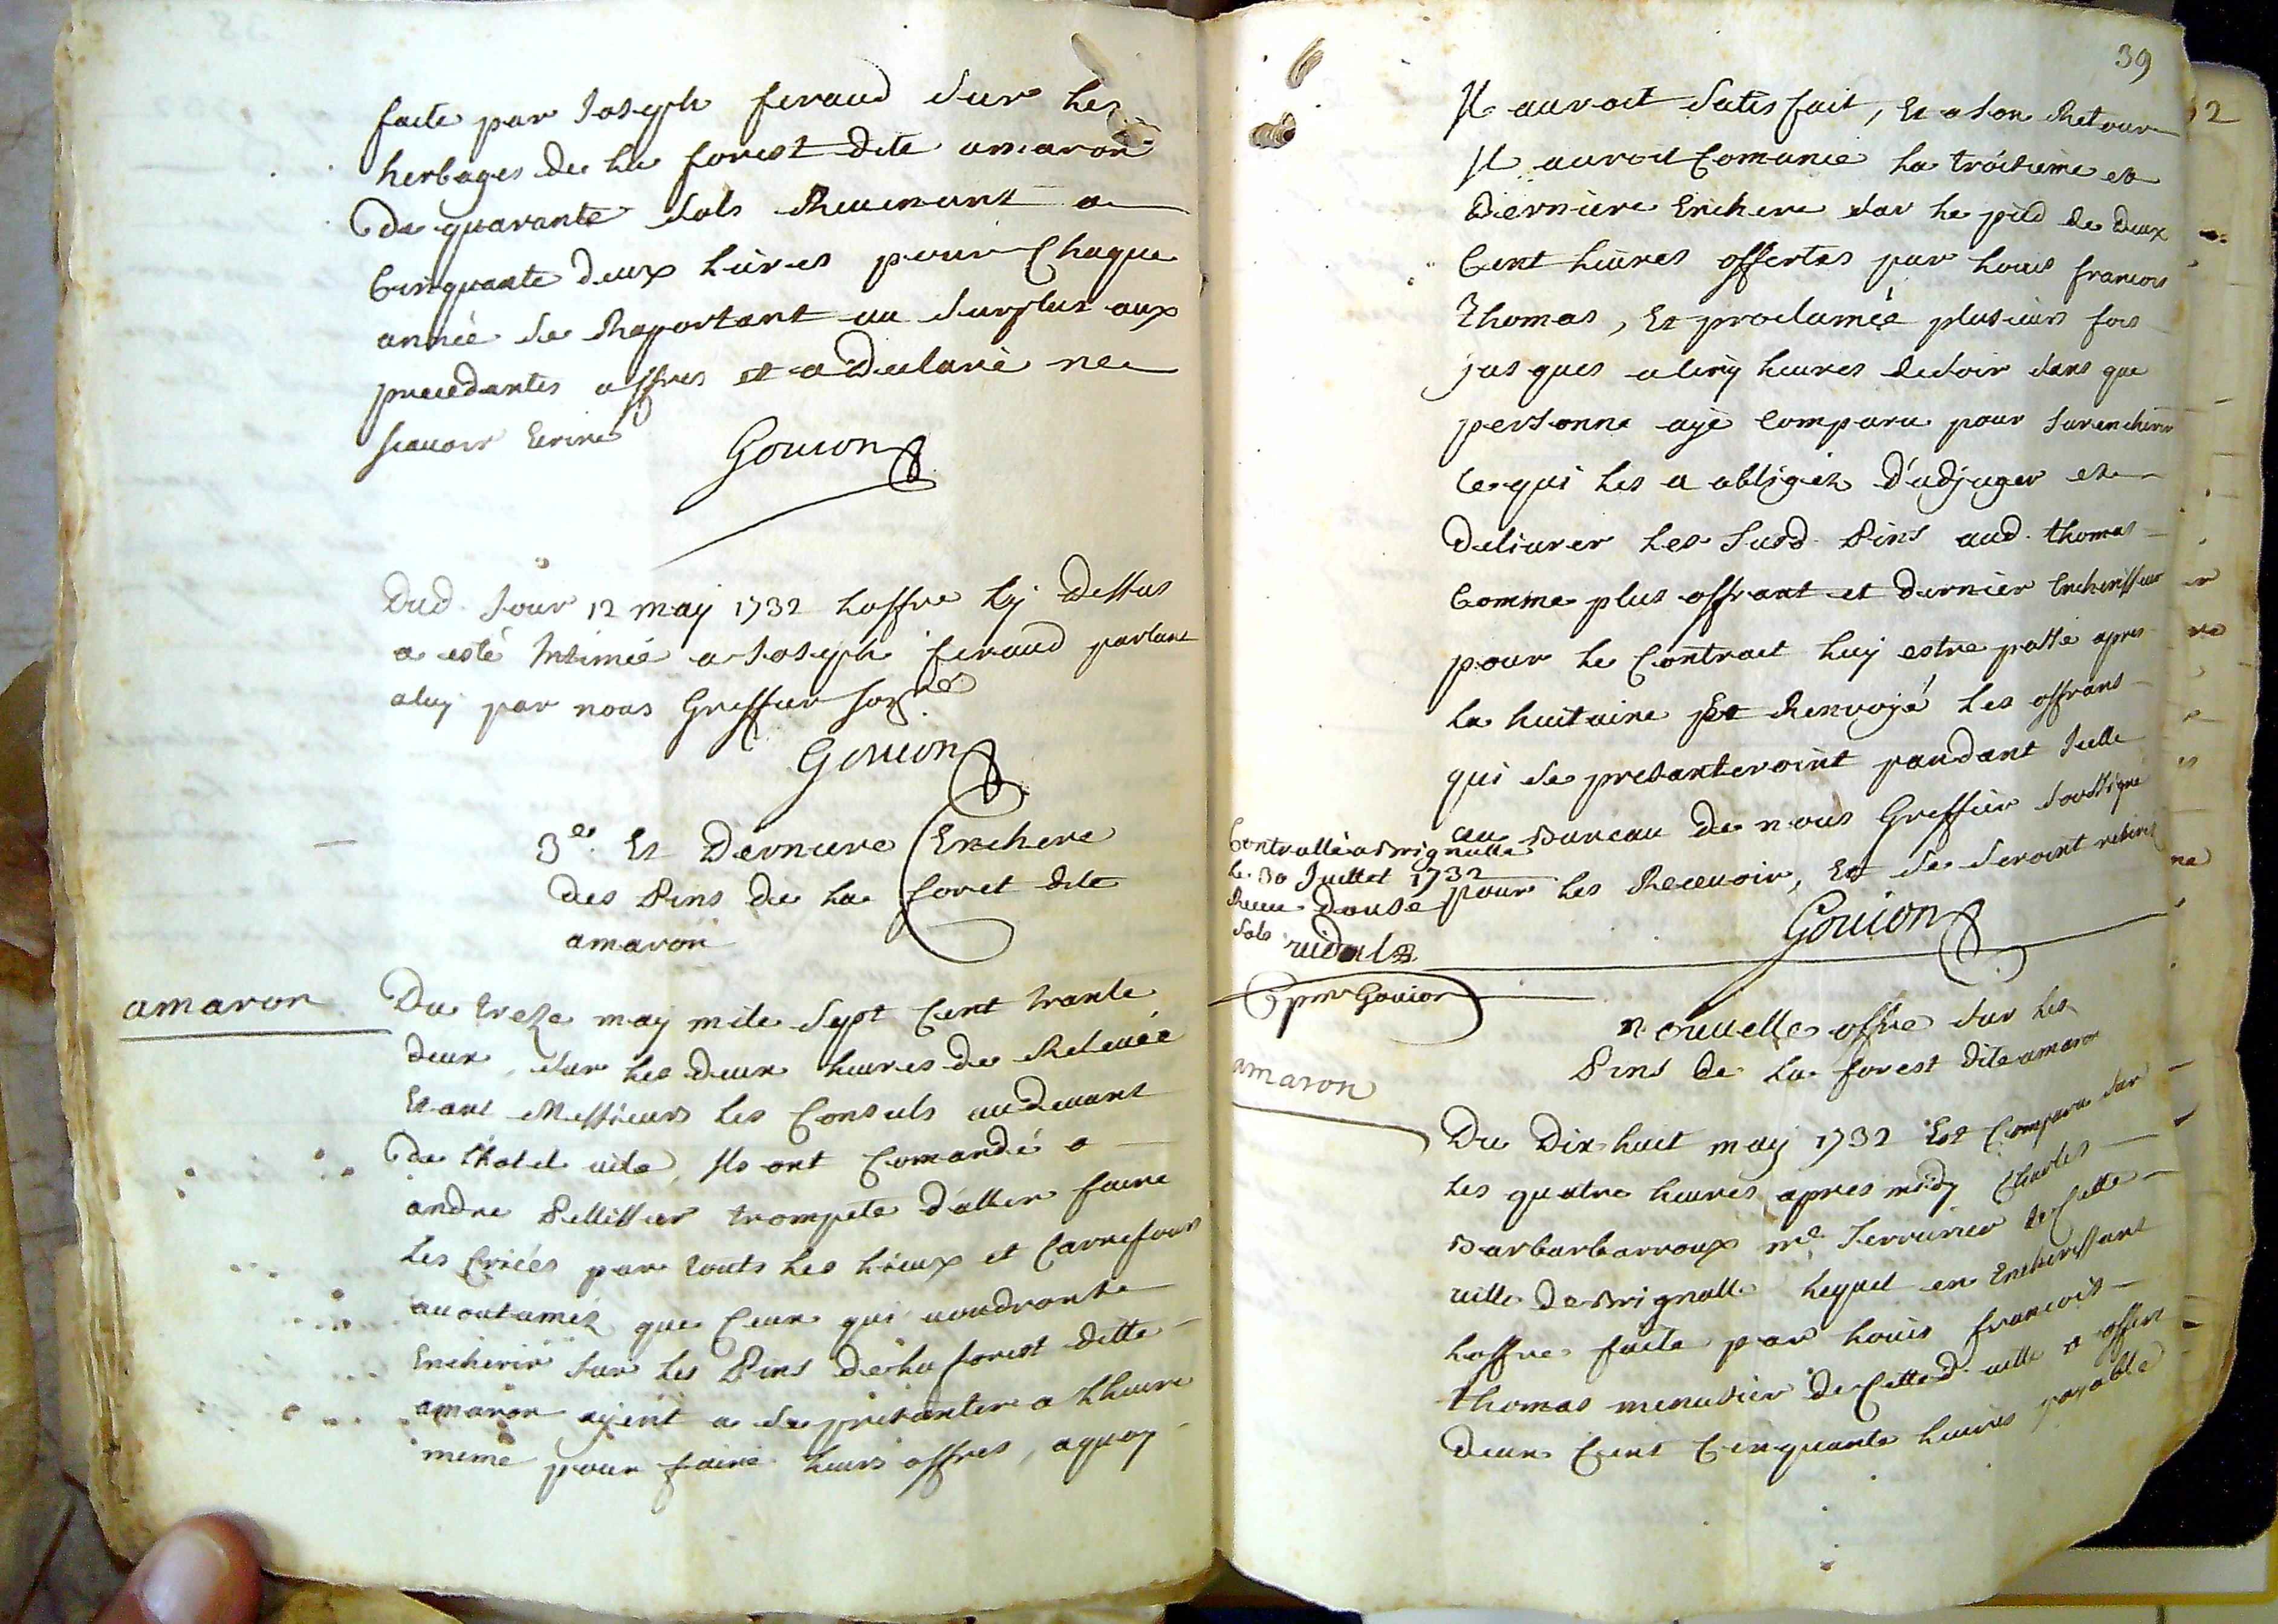 faite par Joseph feraud sur les
herbages de la forest dite amaron
de quarante sols Revenant a
Cinquante deux livres pour Chaque
année se Raportant au surplus aux
precedantes offres et a declaré ne
scavoir Ecrire
Gouion
Dud. Jour 12 may 1732 loffre cy dessus
a esté Intimée a Joseph feraud parlant
a luy par nous Greffier sozné
Gouion
3e. Et Derniere Enchere
des Pins de la foret dite
amaron
amaron
Du treze may mile sept Cent trante
deux, sur les deux heures de Relevée
Etant Messieurs les Consuls audevant
de l'hotel vile, Ils ont Comandé a
andre Pellissier trompete d'aller faire
les Criées par touts les lieux et Carrefours
acoutumez que Ceux qui voudront
Encherir sur les Pins de la forest ditte
amaron ayent a se presanter a lheure
meme pour faire leurs offres, a quoy
39
Il auroit satisfait, Et a son Retour
Il auroit Comancé la troisieme et
derniere Enchere sur le pied de deux
Cent livres offertes par Louis francois
Thomas, Et proclamée plusieurs fois
jusques a cinq heures de soir sans que
personne aye comparu pour surencherir
Ce qui les a obligez d'adjuger et
deliurer les susd. Pins aud. thomas
Comme plus offrant et dernier Encherisseur
pour le Contract luy estre passé apres
la huitaine Et Renvoyé les offrans
qui se presanteroint pandant Icelle
au Bureau de nous Greffier soussigné
pour les Recevoir, Et se seroint retirez
Gouion
Controllé a Brignolle
le 30 Juillet 1732
Receu douse
sols
vidal
Gouion
nouvelle offre sur les
Pins de la forest dite amaron
amaron
Du Dix huit may 1732 Est Comparu sur
les quatre heures apres midy Charles
Barbarroux me. serrurier de Cette
ville de Brignolle lequel en Encherissant
loffre faite par Louis francois
thomas menusier de Cetted. ville a offert
deux Cent Cinquante livres payable